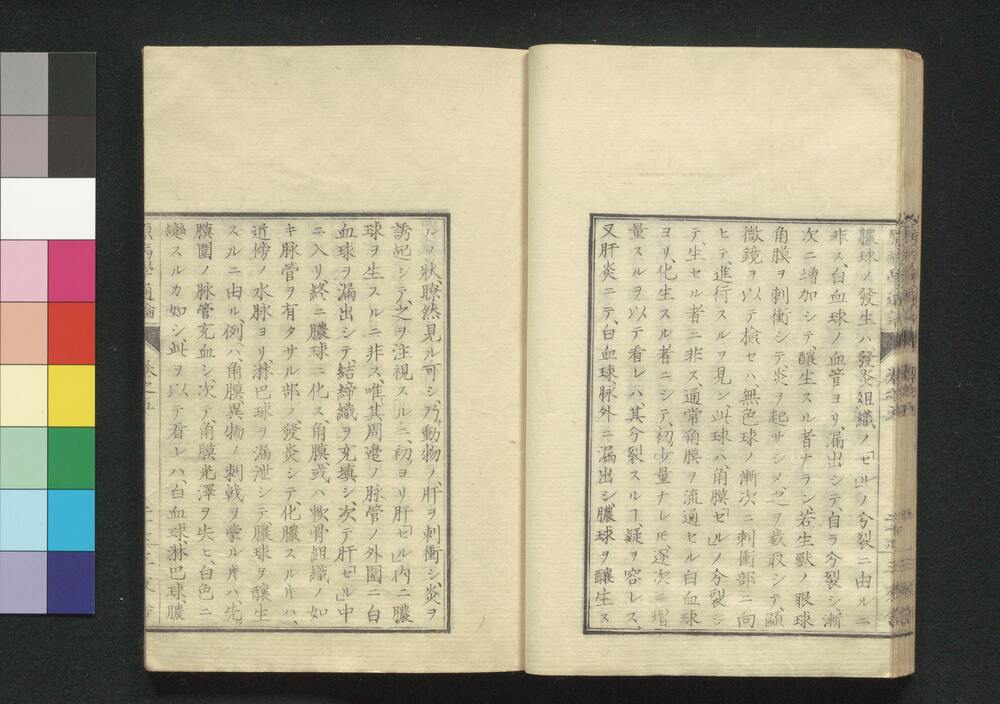 膿球ノ發生ハ發炎組織ノ「セル」ノ分裂ニ由ルニ
非ス、白血球ノ血管ヨリ、漏出シテ、自ラ分裂シ、漸
次ニ增加シテ、釀生スル者ナラン若シ生獸ノ眼球
角膜ヲ刺衝シテ、炎ヲ起サシメ、之ヲ截取シテ、顕
微鏡ヲ以テ檢セハ、無色球ノ漸次ニ刺衝部ニ向
ヒテ、進行スルヲ見ン、此球ハ、角膜「セル」ノ分裂シ
テ、生セル者ニ非ス、通常角膜ヲ流通セル白血球
ヨリ、化生スル者ニシテ、初少量ナレ𪜈逐次ニ增
量スルヲ以テ看レハ、其分裂スルヿ、疑ヲ容レス、
又肝炎ニテ、白血球、脉外ニ漏出シ、膿球ヲ釀生ス
ルノ狀瞭然見ル可シ、乃動物ノ、肝ヲ刺衝シ、炎ヲ
誘起シテ、之ヲ注視スルニ、初ヨリ肝「セル」内ニ膿
球ヲ生スルニ非ス、唯、其周邊ノ脉管ノ外圍ニ白
血球ヲ漏出シテ、結締織ヲ充填シ、次テ肝「セル」中
ニ入リ、終ニ膿球ニ化ス、角膜或ハ軟骨組織ノ如
キ脉管ヲ有タサル部ノ、發炎シテ、化膿スル𪜈ハ、
近傍ノ水脉ヨリ、淋巴球ヲ漏泄シテ膿球ヲ釀生
スルニ由ル、例ハ、角膜異物ノ刺戟ヲ蒙ル𪜈ハ先
膜圍ノ脉管充血シ、次テ角膜光澤ヲ失ヒ、白色ニ
變スルカ如シ此ヲ以テ看レハ、白血球、淋巴球、膿